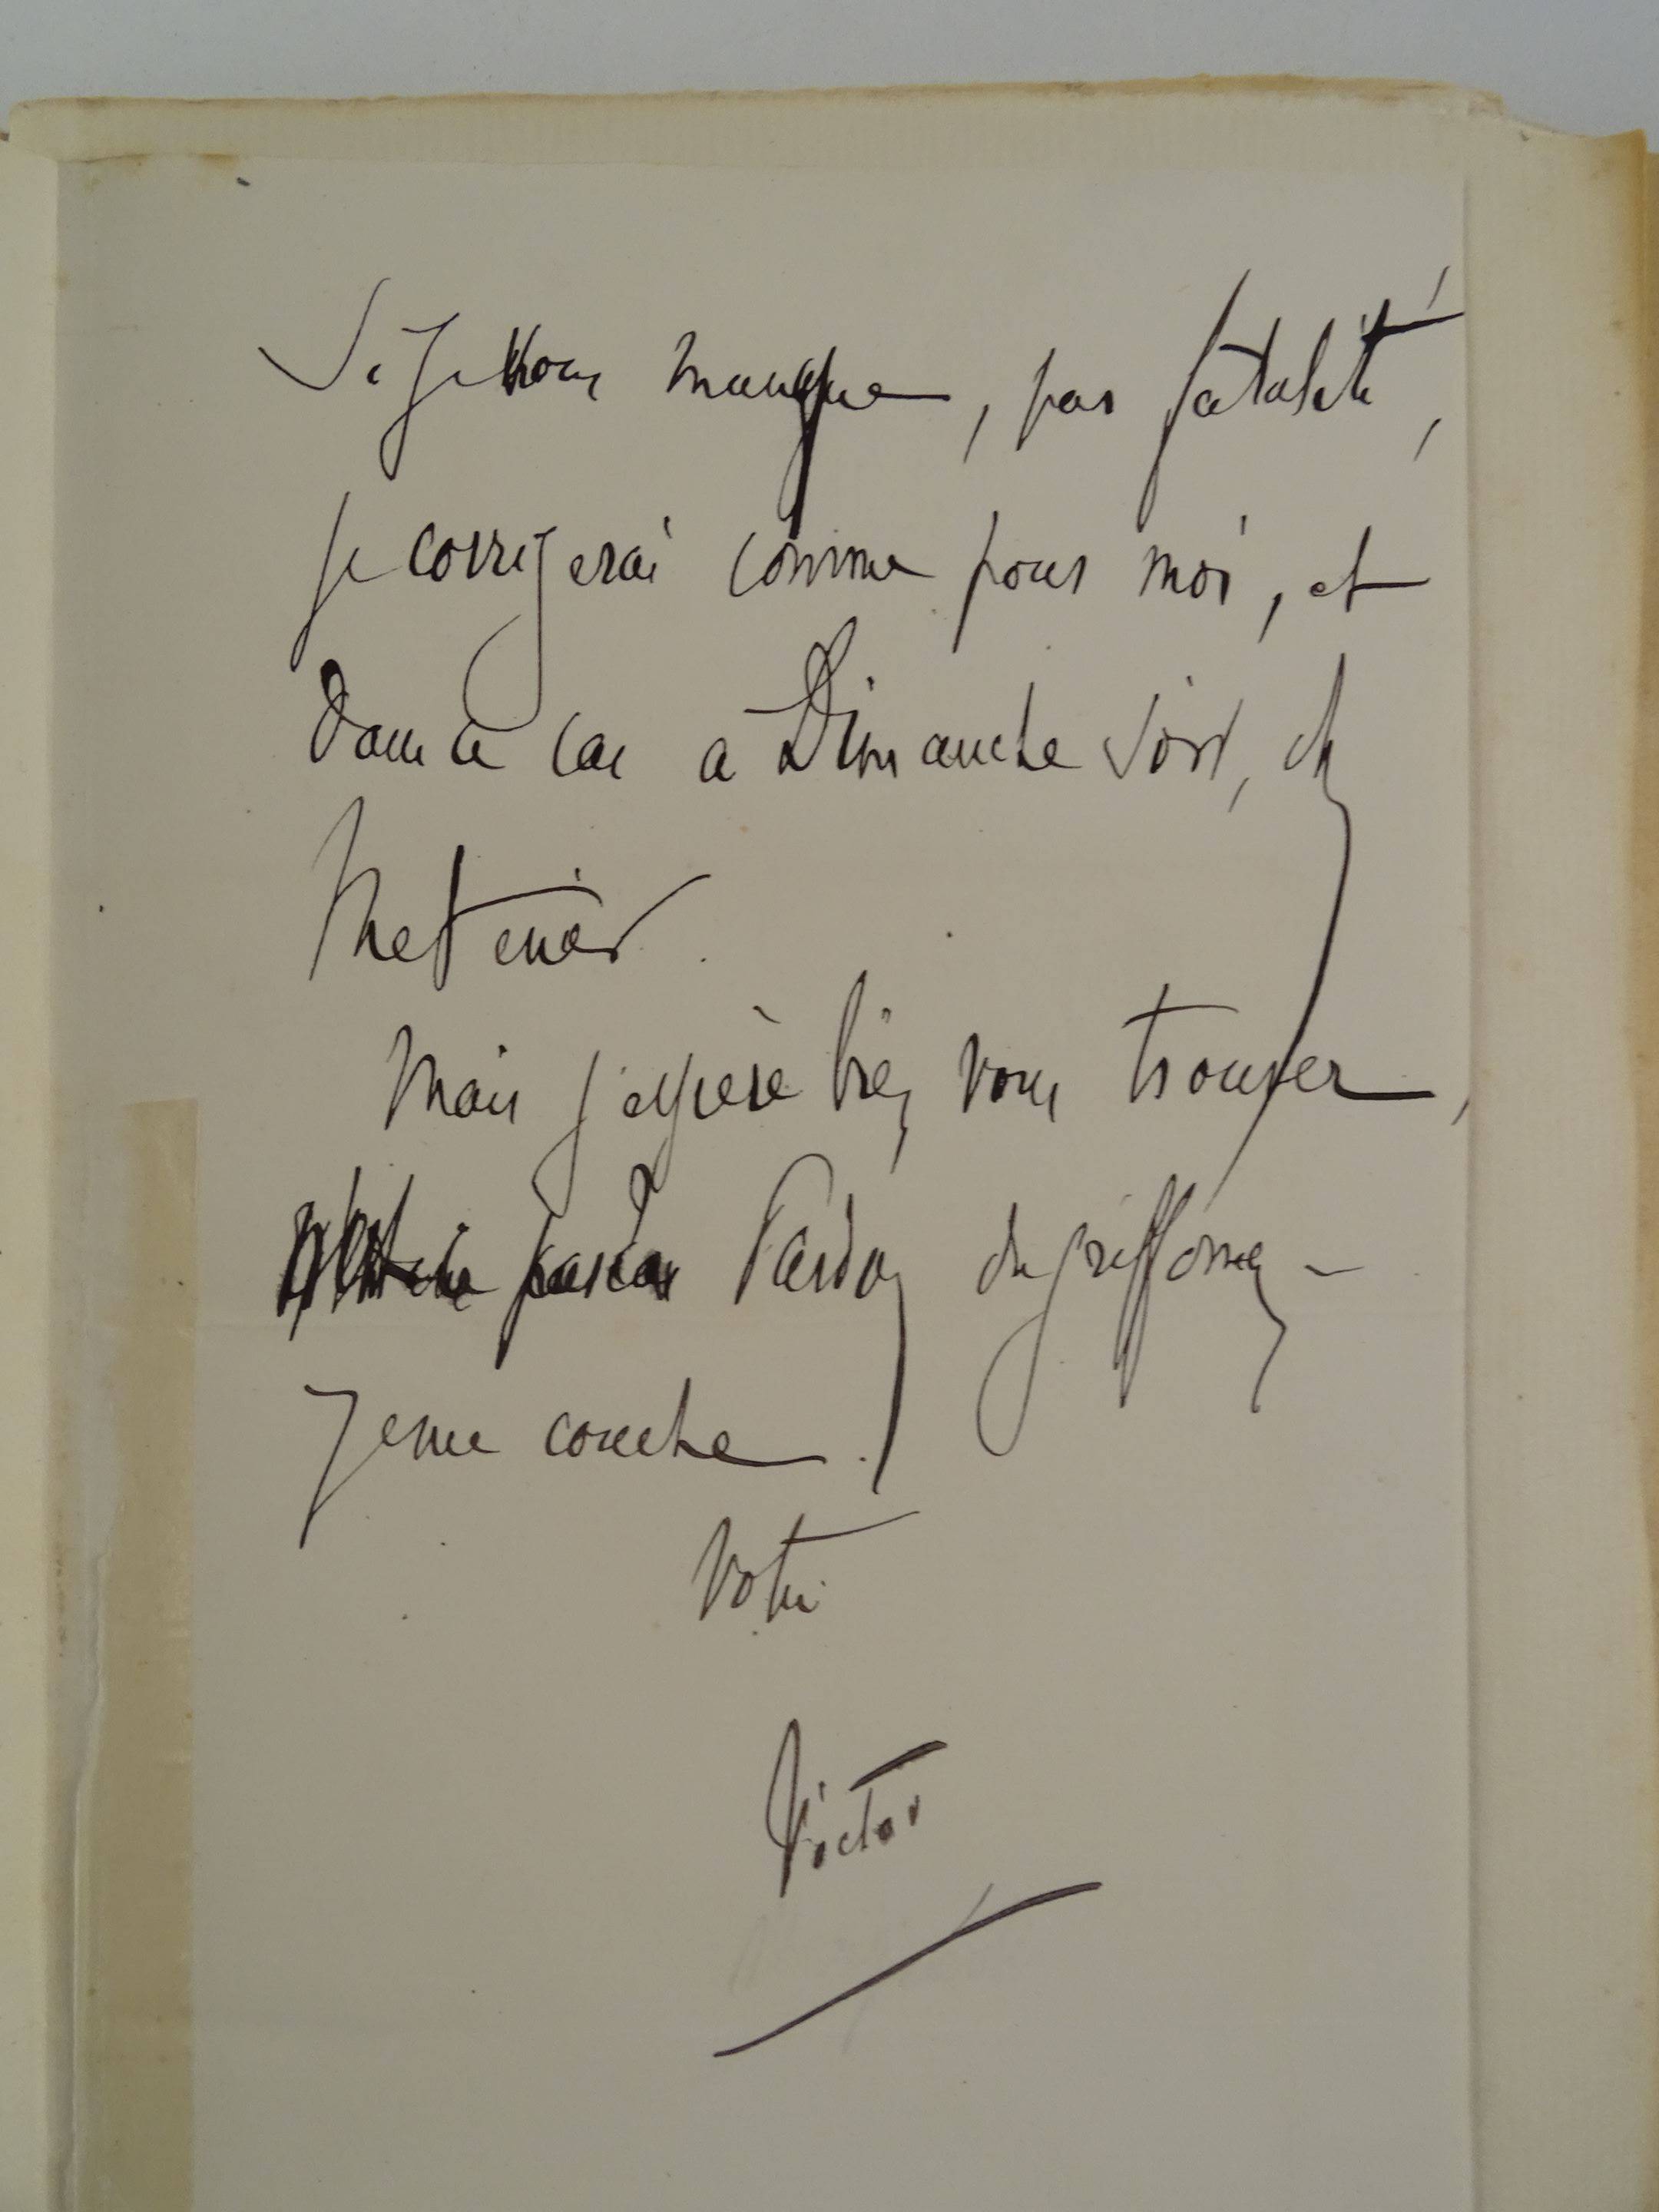 Si je vous manque, par fatalité,
je corrigerai comme pour moi, et
dans ce cas à Dimanche soir, chez
Metenier.
Mais j'espère bien vous trouver,
Pardon du griffonnage
je me couche.
Votre
Victor